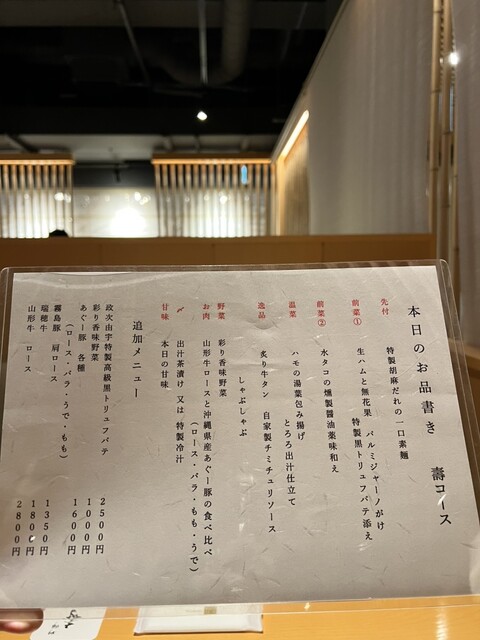 本日のお品書き　壽コース
先付
特製胡麻だれの一口素麺
前菜①
生ハムと無花果　パルミジャーノがけ
特製黒トリュフパテ添え
前菜②
水タコの燻製醤油薬味和え
温菜
ハモの湯葉包み揚げ
とろろ出汁仕立て
逸品
炙り牛タン　自家製チミチュリソース
しゃぶしゃぶ
野菜
彩り香味野菜
お肉
山形牛ロースと沖縄県産あぐー豚の食べ比べ
（ロース・バラ・もも・うで）
〆
出汁茶漬け 又は 特製冷汁
甘味
本日の甘味
追加メニュー
政次由宇特製高級黒トリュフパテ　2500円
彩り香味野菜　1000円
あぐー豚　各種　1600円
（ロース・バラ・うで・もも）
霧島豚　肩ロース　1350円
瑞穂牛　1800円
山形牛　ロース　2800円